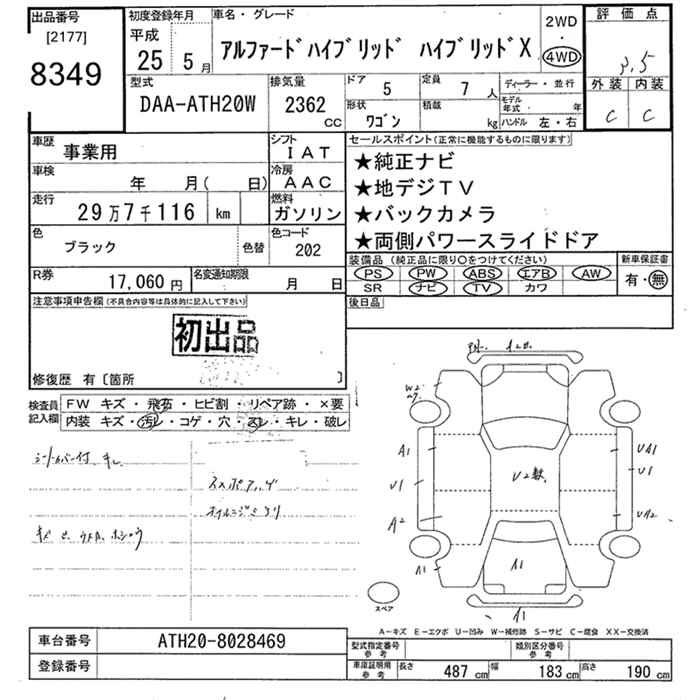 出品番号
[2177]
8349
初度登録年月
平成
25 5 月
車名・グレード
アルファードハイブリッド ハイブリッドX
2WD
・
4WD
評価点
3.5
外装 内装
C C
型式
DAA-ATH20W
排気量
2362 CC
ドア 5
定員 7 人
形状 ワゴン
積載 kg
ディーラー・並行
モデル年式 年
ハンドル 左・右
車歴 事業用
シフト IAT
車検 年 月( 日)
冷房 AAC
走行 29万7千116 km
燃料 ガソリン
色 ブラック 色替
色コード 202
R券 17,060 円
名変通知期限 月 日
セールスポイント(正常に機能するものに限ります)
★純正ナビ
★地デジTV
★バックカメラ
★両側パワースライドドア
装備品 (純正品に限り○をつけてください)
PS PW ABS エアB AW
SR ナビ TV カワ
新車保証書
有・無
後日品
注意事項申告欄(不具合内容等は具体的に記入して下さい)
初出品
修復歴 有〔箇所 〕
検査員記入欄
FW キズ・飛石・ヒビ割・リペア跡・×要
内装 キズ・汚レ・コゲ・穴・スレ・キレ・破レ
シートカバー付 キレ
W2
A1
U1
A2
A1
U2数
A1
UA1
U1
UA2
A1
スペア
A-キズ E-エクボ U-凹み W-補修跡 S-サビ C-腐食 XX-交換済
車台番号 ATH20-8028469
登録番号
型式指定番号 参考
類別区分番号 参考
車庫証明用 参考
長さ 487 cm 幅 183 cm 高さ 190 cm